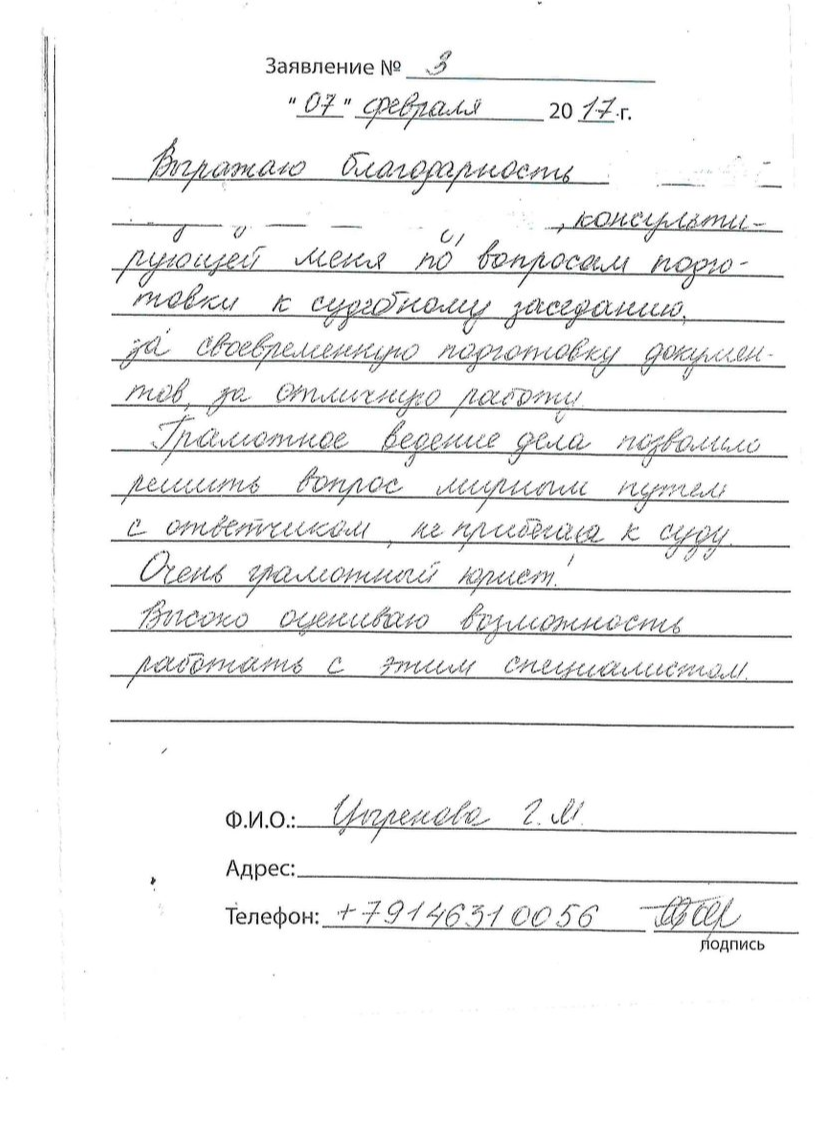 Заявление № 3
"07" февраля 2017 г.
Выражаю благодарность
, консульти-
рующей меня по вопросам подго-
товки к судебному заседанию,
за своевременную подготовку докумен-
тов, за отличную работу.
Грамотное ведение дела позволило
решить вопрос мирным путем
с ответчиком, не прибегая к суду.
Очень грамотный юрист!
Высоко оцениваю возможность
работать с этим специалистом.
Ф.И.О.: Цыренова Г.М.
Адрес:
Телефон: +79146310056
подпись